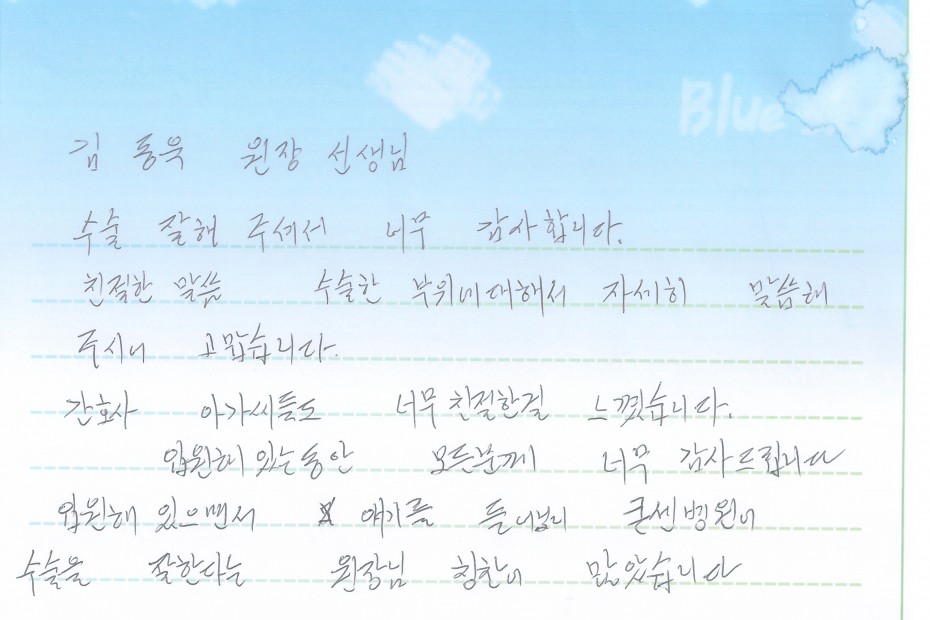 Blue
김 동욱 원장 선생님
수술 잘해 주셔서 너무 감사합니다.
친절한 말씀 수술한 부위에대해서 자세히 말씀해
주시니 고맙습니다.
간호사 아가씨들도 너무 친절한걸 느꼈습니다.
입원해 있는동안 모든분께 너무 감사드립니다
입원해 있으면서 얘기를 들어보니 큰센병원이
수술을 잘한다는 원장님 칭찬이 많았습니다